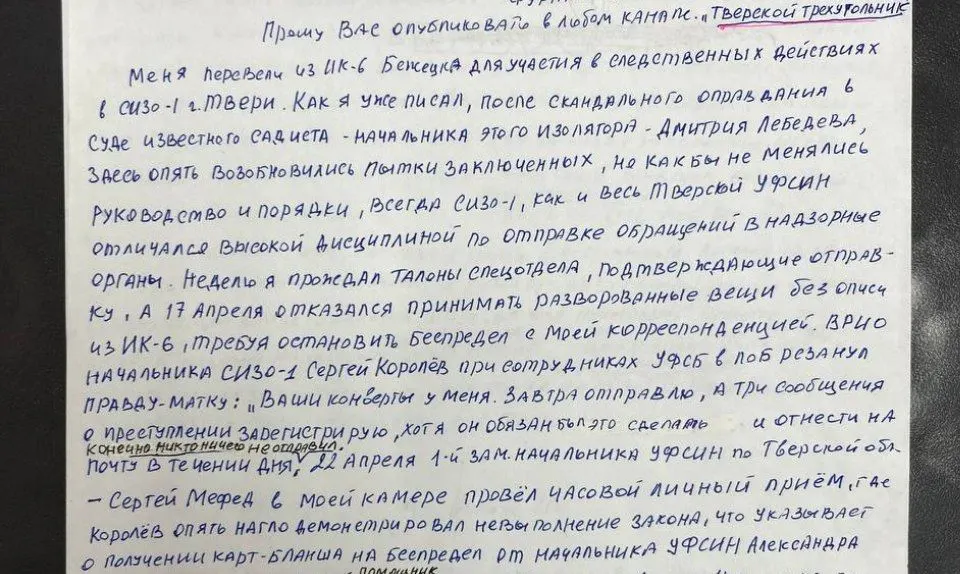 Прошу ВАС опубликовать в любом канале „Тверской треугольник
Меня перевели из ИК-6 Бежецка для участия в следственных действиях
в СИЗО-1 г. Твери. Как я уже писал, после скандального оправдания в
суде известного садиста - начальника этого изолятора - Дмитрия Лебедева,
здесь опять возобновились пытки заключенных, но как бы не менялись
руководство и порядки, всегда СИЗО-1, как и весь Тверской УФСИН
отличался высокой дисциплиной по отправке обращений в надзорные
органы. Неделю я прождал талоны спецотдела, подтверждающие отправ-
ку, а 17 Апреля отказался принимать разворованные вещи без описи
из ИК-6, требуя остановить беспредел с моей корреспонденцией. ВРИО
начальника СИЗО-1 Сергей Королёв при сотрудниках УФСБ в лоб резанул
правду-матку: „Ваши конверты у меня. Завтра отправлю, а три сообщения
о преступлении зарегистрирую, хотя он обязан был это сделать и отнести на
конечно никто ничего не отправил!
почту в течении дня, 22 Апреля 1-й зам. начальника УФСИН по Тверской обл.
- Сергей Мефед в моей камере провёл часовой личный приём, где
Королёв опять нагло демонстрировал невыполнение закона, что указывает
о получении карт-бланша на беспредел от начальника УФСИН Александра
помощник